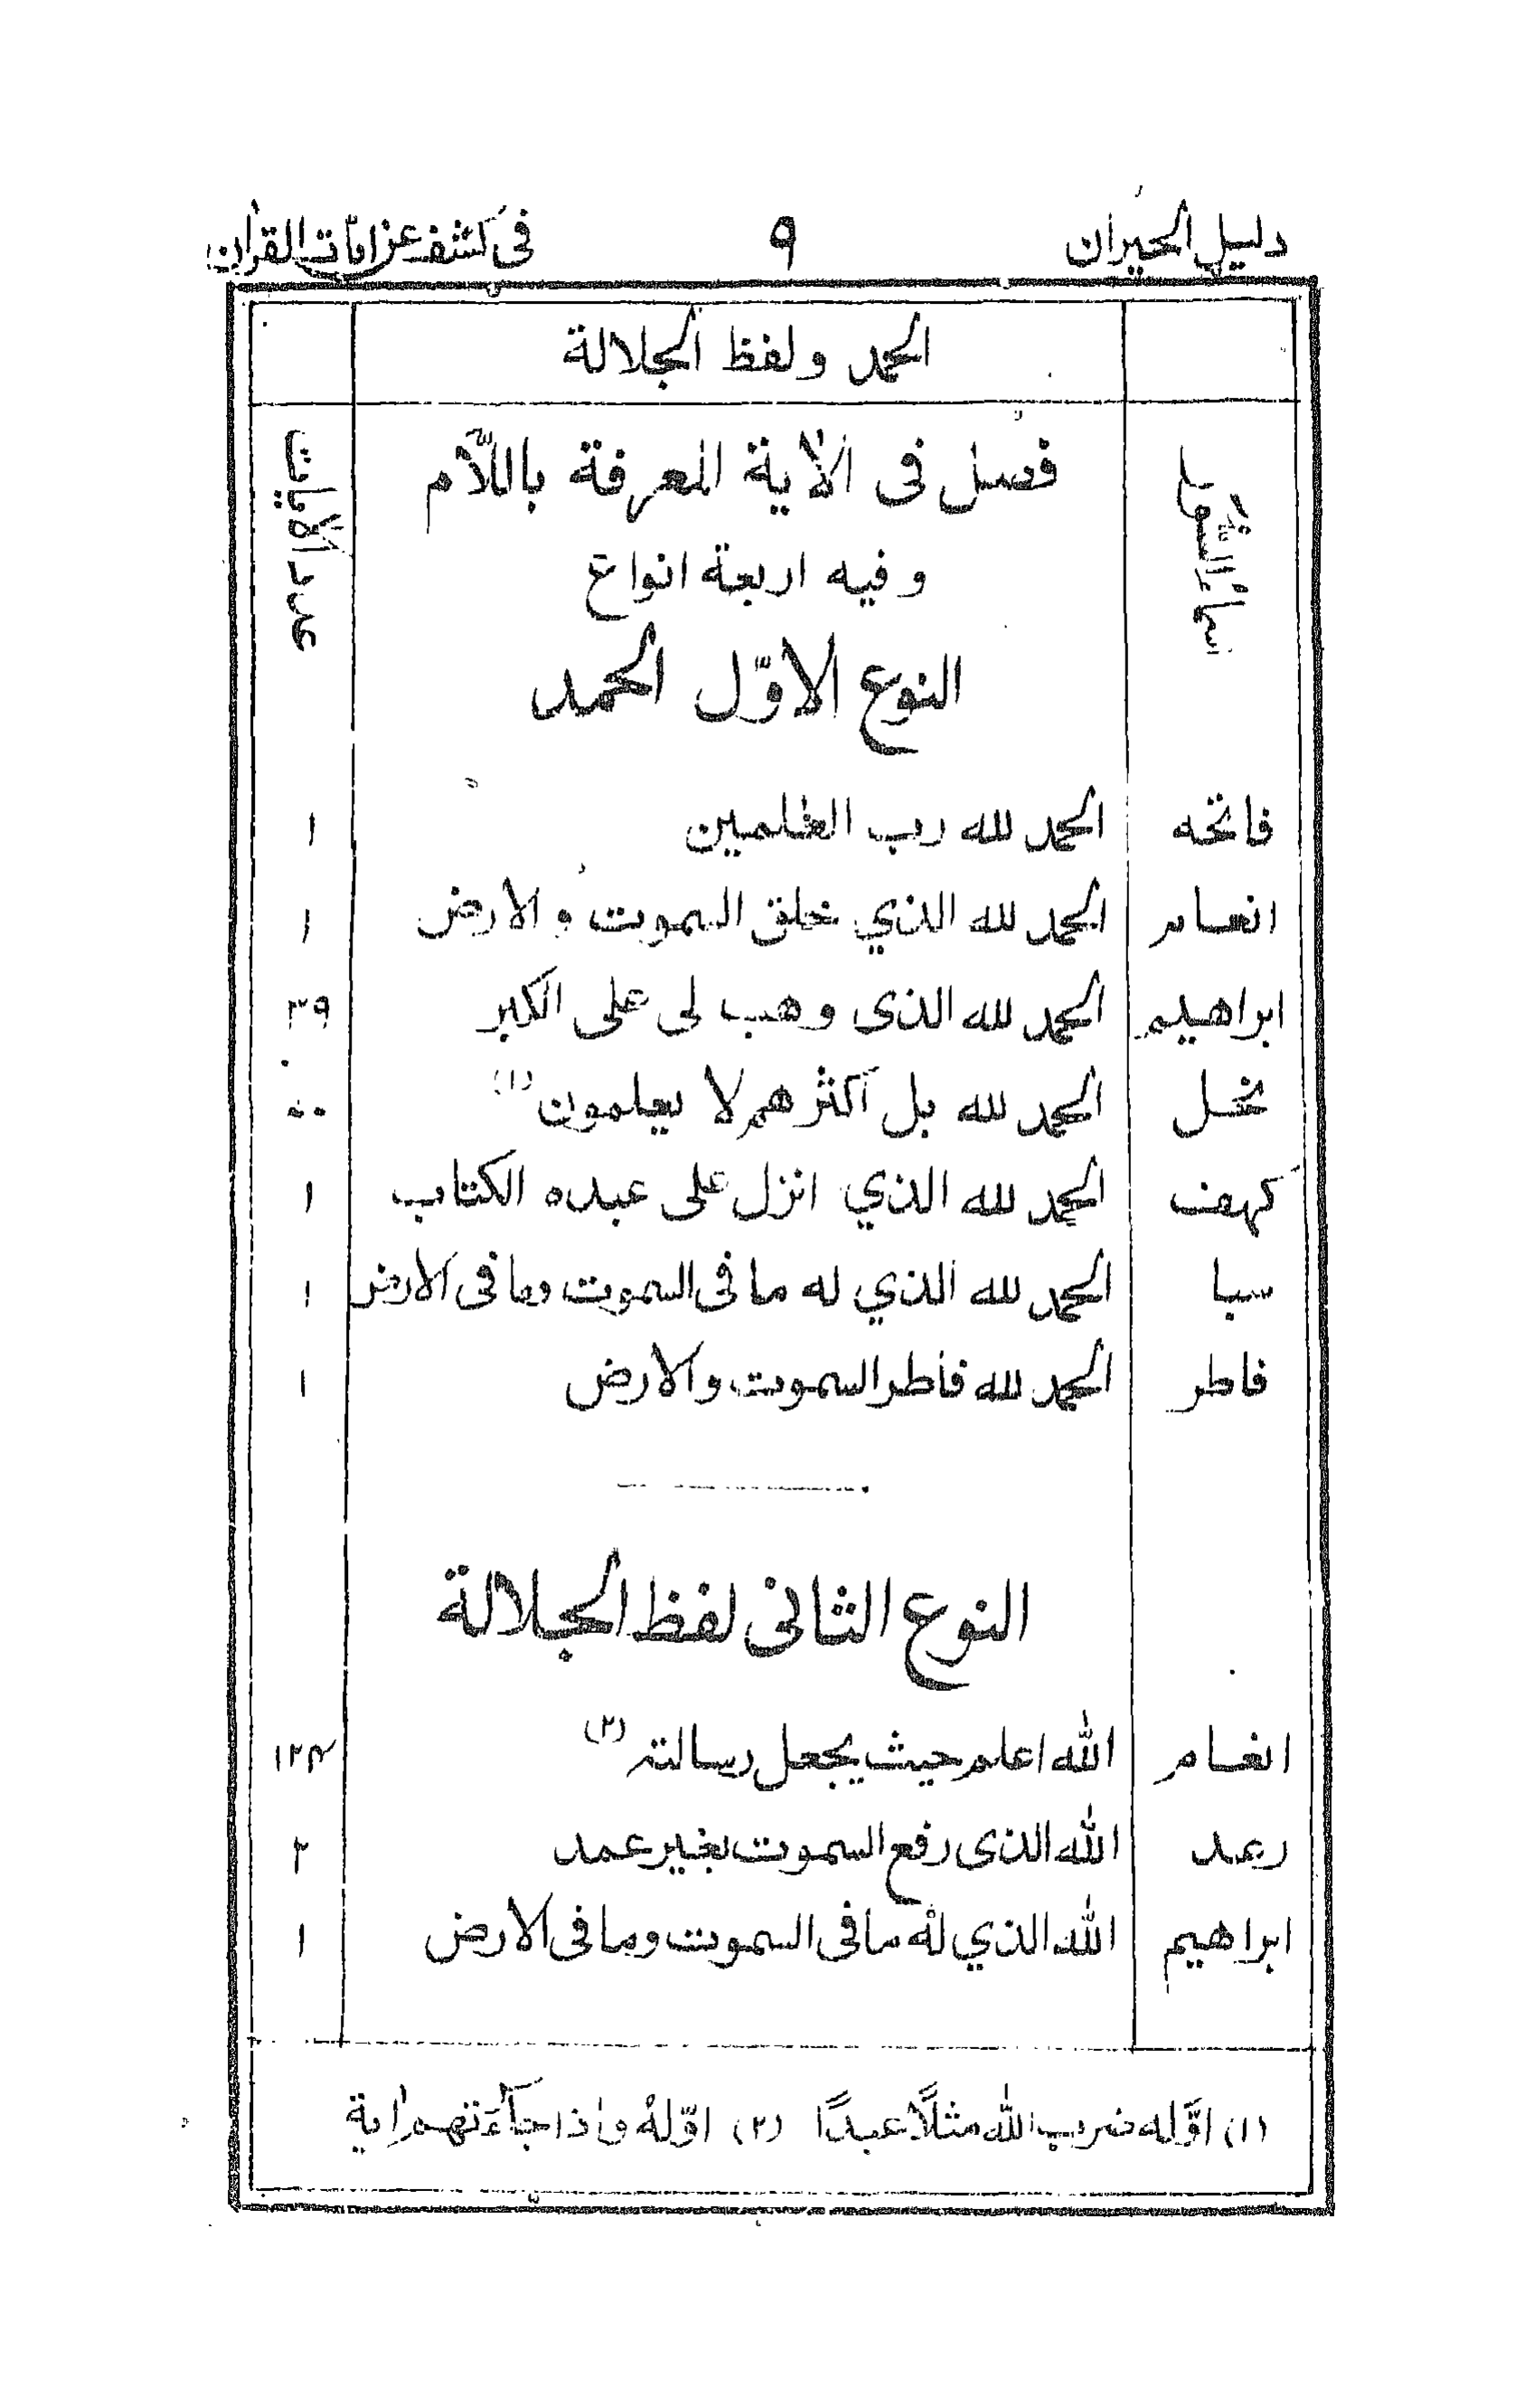 دليل الحيران ٩ في كشف عن اٰيات القراٰن
الحمد ولفظ الجلالة
اسماء السور
عدد الاٰيات
فصل فى الاٰية المعرفة باللّام
وفيه اربعة انواع
النوع الاوّل الحمد
فاتحه الحمد لله رب العٰلمين ١
انعام الحمد لله الذي خلق السموت والارض ١
ابراهيم الحمد لله الذى وهب لى على الكبر ٣٩
نحل الحمد لله بل اكثرهم لا يعلمون (١)
كهف الحمد لله الذي انزل على عبده الكتاب ١
سبا الحمد لله الذي له ما فى السموت وما فى الارض ١
فاطر الحمد لله فاطر السموت والارض ١
النوع الثانى لفظ الجلالة
انعام الله اعلم حيث يجعل رسالته (٢) ١٢۴
رعد الله الذى رفع السموت بغير عمد ٢
ابراهيم الله الذي له ما فى السموت وما فى الارض ١
(١) اوّله ضرب الله مثلًا عبدًا (٢) اوّلهٗ واذا جآءَتهم اٰية